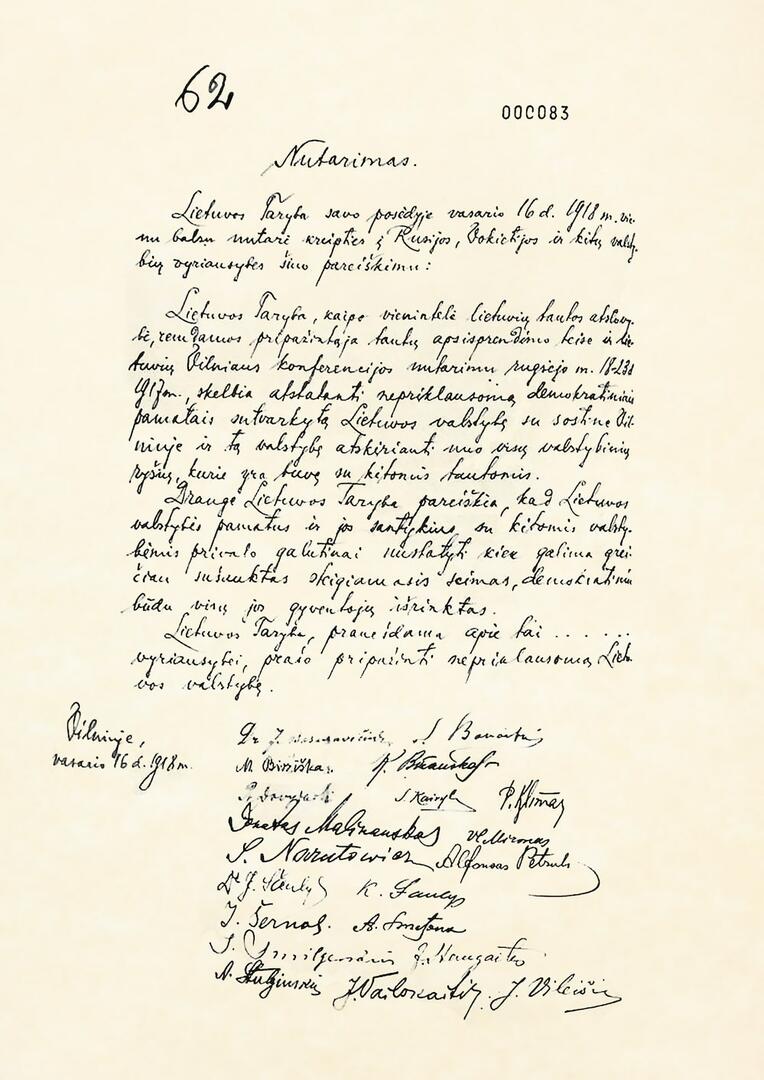 62
000083
Nutarimas.
Lietuvos Taryba savo posėdyje vasario 16 d. 1918 m. vie-
nu balsu nutarė kreipties į Rusijos, Vokietijos ir kitų valsty-
bių vyriausybes šiuo pareiškimu:
Lietuvos Taryba, kaipo vienintelė lietuvių tautos atstovy-
bė, remdamos pripažintąja tautų apsisprendimo teise ir lie-
tuvių Vilniaus konferencijos nutarimu rugsėjo m. 18-23 d
1917 m., skelbia atstatanti nepriklausomą demokratiniais
pamatais sutvarkytą Lietuvos valstybę su sostine Vil-
niuje ir tą valstybę atskirianti nuo visų valstybinių
ryšių, kurie yra buvę su kitomis tautomis.
Drauge Lietuvos Taryba pareiškia, kad Lietuvos
valstybės pamatus ir jos santykius su kitomis valsty-
bėmis privalo galutinai nustatyti kiek galima grei-
čiau sušauktas steigiamasis seimas, demokratiniu
būdu visų jos gyventojų išrinktas.
Lietuvos Taryba, pranešdama apie tai . . . . . .
vyriausybei, prašo pripažinti nepriklausomą Lietu-
vos valstybę.
Vilniuje,
vasario 16 d. 1918 m.
Dr. J. Basanavičius S. Banaitis
M. Biržiška K. Bizauskas
S. Kairys P. Klimas
Donatas Malinauskas Vl. Mironas
S. Narutowicz Alfonsas Petrulis
Dr J. Šaulys K. Šaulys
J. Šernas A. Smetona
J. Smilgevičius J. Staugaitis
A. Stulginskis J. Vailokaitis J. Vileišis